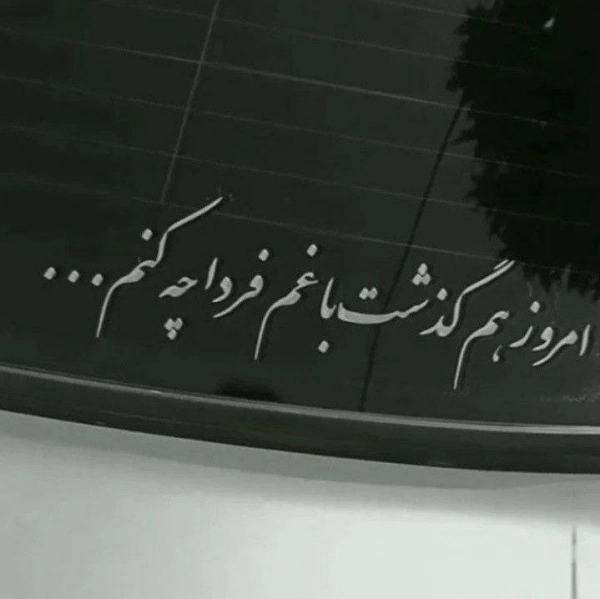 امروز هم گذشت با غم فردا چه کنم...